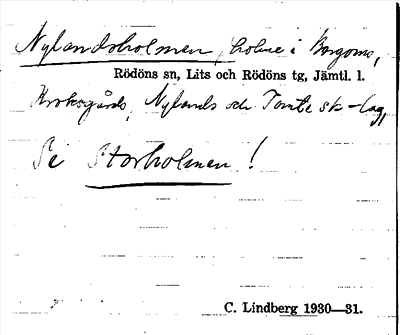 Nylandsholmen, holme i
Rödöns sn, Lits och Rödöns tg, Jämtl. l.
Kroksgårds, Nylands och Tomte sk-lag,
Se Storholmen!
C. Lindberg 1930—31.